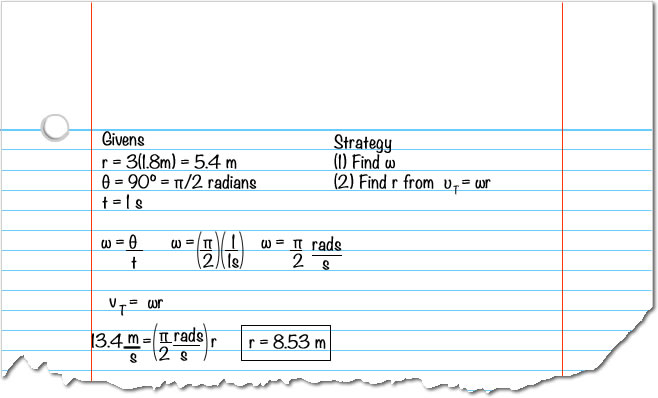 Givens
r = 3(1.8m) = 5.4 m
θ = 90° = π/2 radians
t = 1 s
Strategy
(1) Find ω
(2) Find r from υ_T = ωr
ω = θ/t ω = (π/2)(1/1s) ω = π/2 rads/s
v_T = ωr
13.4 m/s = (π/2 rads/s) r r = 8.53 m